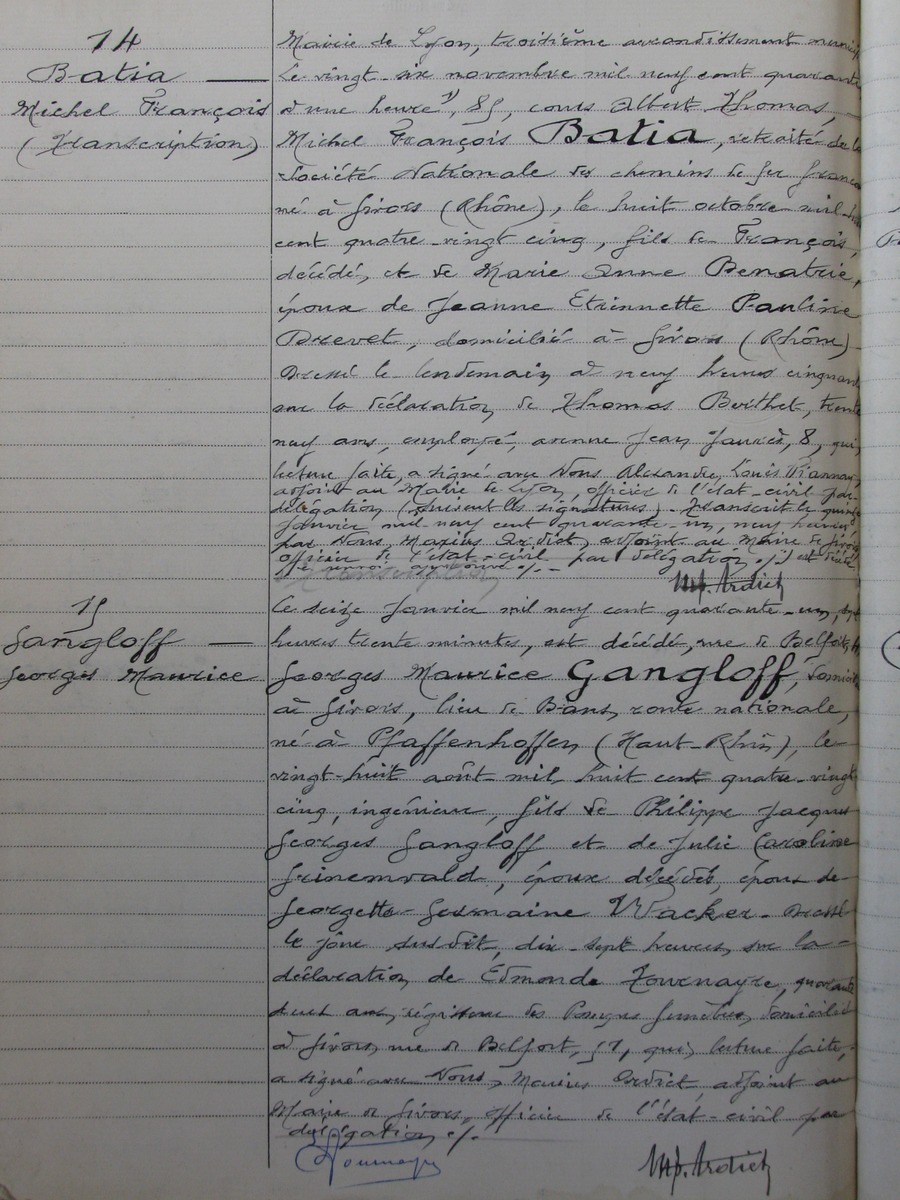 14
Batia
Michel François
(Transcription)
Mairie de Lyon, troisième arrondissement
Le vingt-six novembre mil neuf cent quarante
à une heure 1), 85, cours Albert Thomas,
Michel François Batia, retraité de la
Société Nationale des chemins de fer
né à Givors (Rhône), le huit octobre mil
cent quatre-vingt cinq, fils de François,
décédé, et de Marie Anne Benatrie,
époux de Jeanne Etiennette Pauline
Brevet, domicilié à Givors (Rhône)
Dressé le lendemain à neuf heures
sur la déclaration de Thomas Berthet, trente
neuf ans, employé, avenue Jean Jaurès, 8, qui,
lecture faite, a signé avec Nous Alexandre, Louis
adjoint au Maire de Lyon, officier de l'état-civil par
délégation (suivent les signatures). Transcrit le quinze
Janvier mil neuf cent quarante-un, neuf heures
par Nous, Marius Ardiet, adjoint au Maire de Givors
officier de l'état-civil par délégation ./. 1) est décédé
transcription
M. Ardiet
15
Gangloff
Georges Maurice
Le seize Janvier mil neuf cent quarante-un, sept
heures trente minutes, est décédé, rue de Belfort,
Georges Maurice Gangloff,
à Givors, lieu de Bans, route nationale,
né à Pfaffenhoffen (Haut-Rhin), le
vingt-huit août mil huit cent quatre-vingt
cinq, ingénieur, fils de Philippe Jacques
Georges Gangloff et de Julie Caroline
Grinemvald, époux décédés, époux de
Georgette Germaine Wacker. Dressé
le jour susdit, dix-sept heures, sur la
déclaration de Edmonde Tournayre, quarante
deux ans, régisseur des Pompes funèbres, domicilié
à Givors, rue de Belfort, 57, qui, lecture faite,
a signé avec Nous, Marius Ardiet, adjoint au
Maire de Givors, officier de l'état-civil par
délégation ./.
Tournayre
M. Ardiet